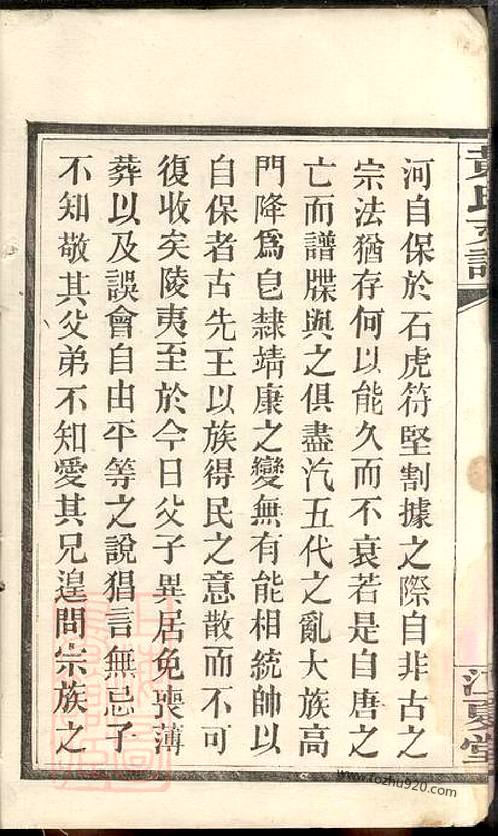 河自保於石虎符堅割據之際自非古之
宗法猶存何以能久而不衰若是自唐之
亡而譜牒與之俱盡汔五代之亂大族高
門降爲皂隸靖康之變無有能相統帥以
自保者古先王以族得民之意散而不可
復收矣陵夷至於今日父子異居免喪薄
葬以及誤會自由平等之說猖言無忌子
不知敬其父弟不知愛其兄遑問宗族之
黃氏支譜
江夏堂
www.fozhu920.com